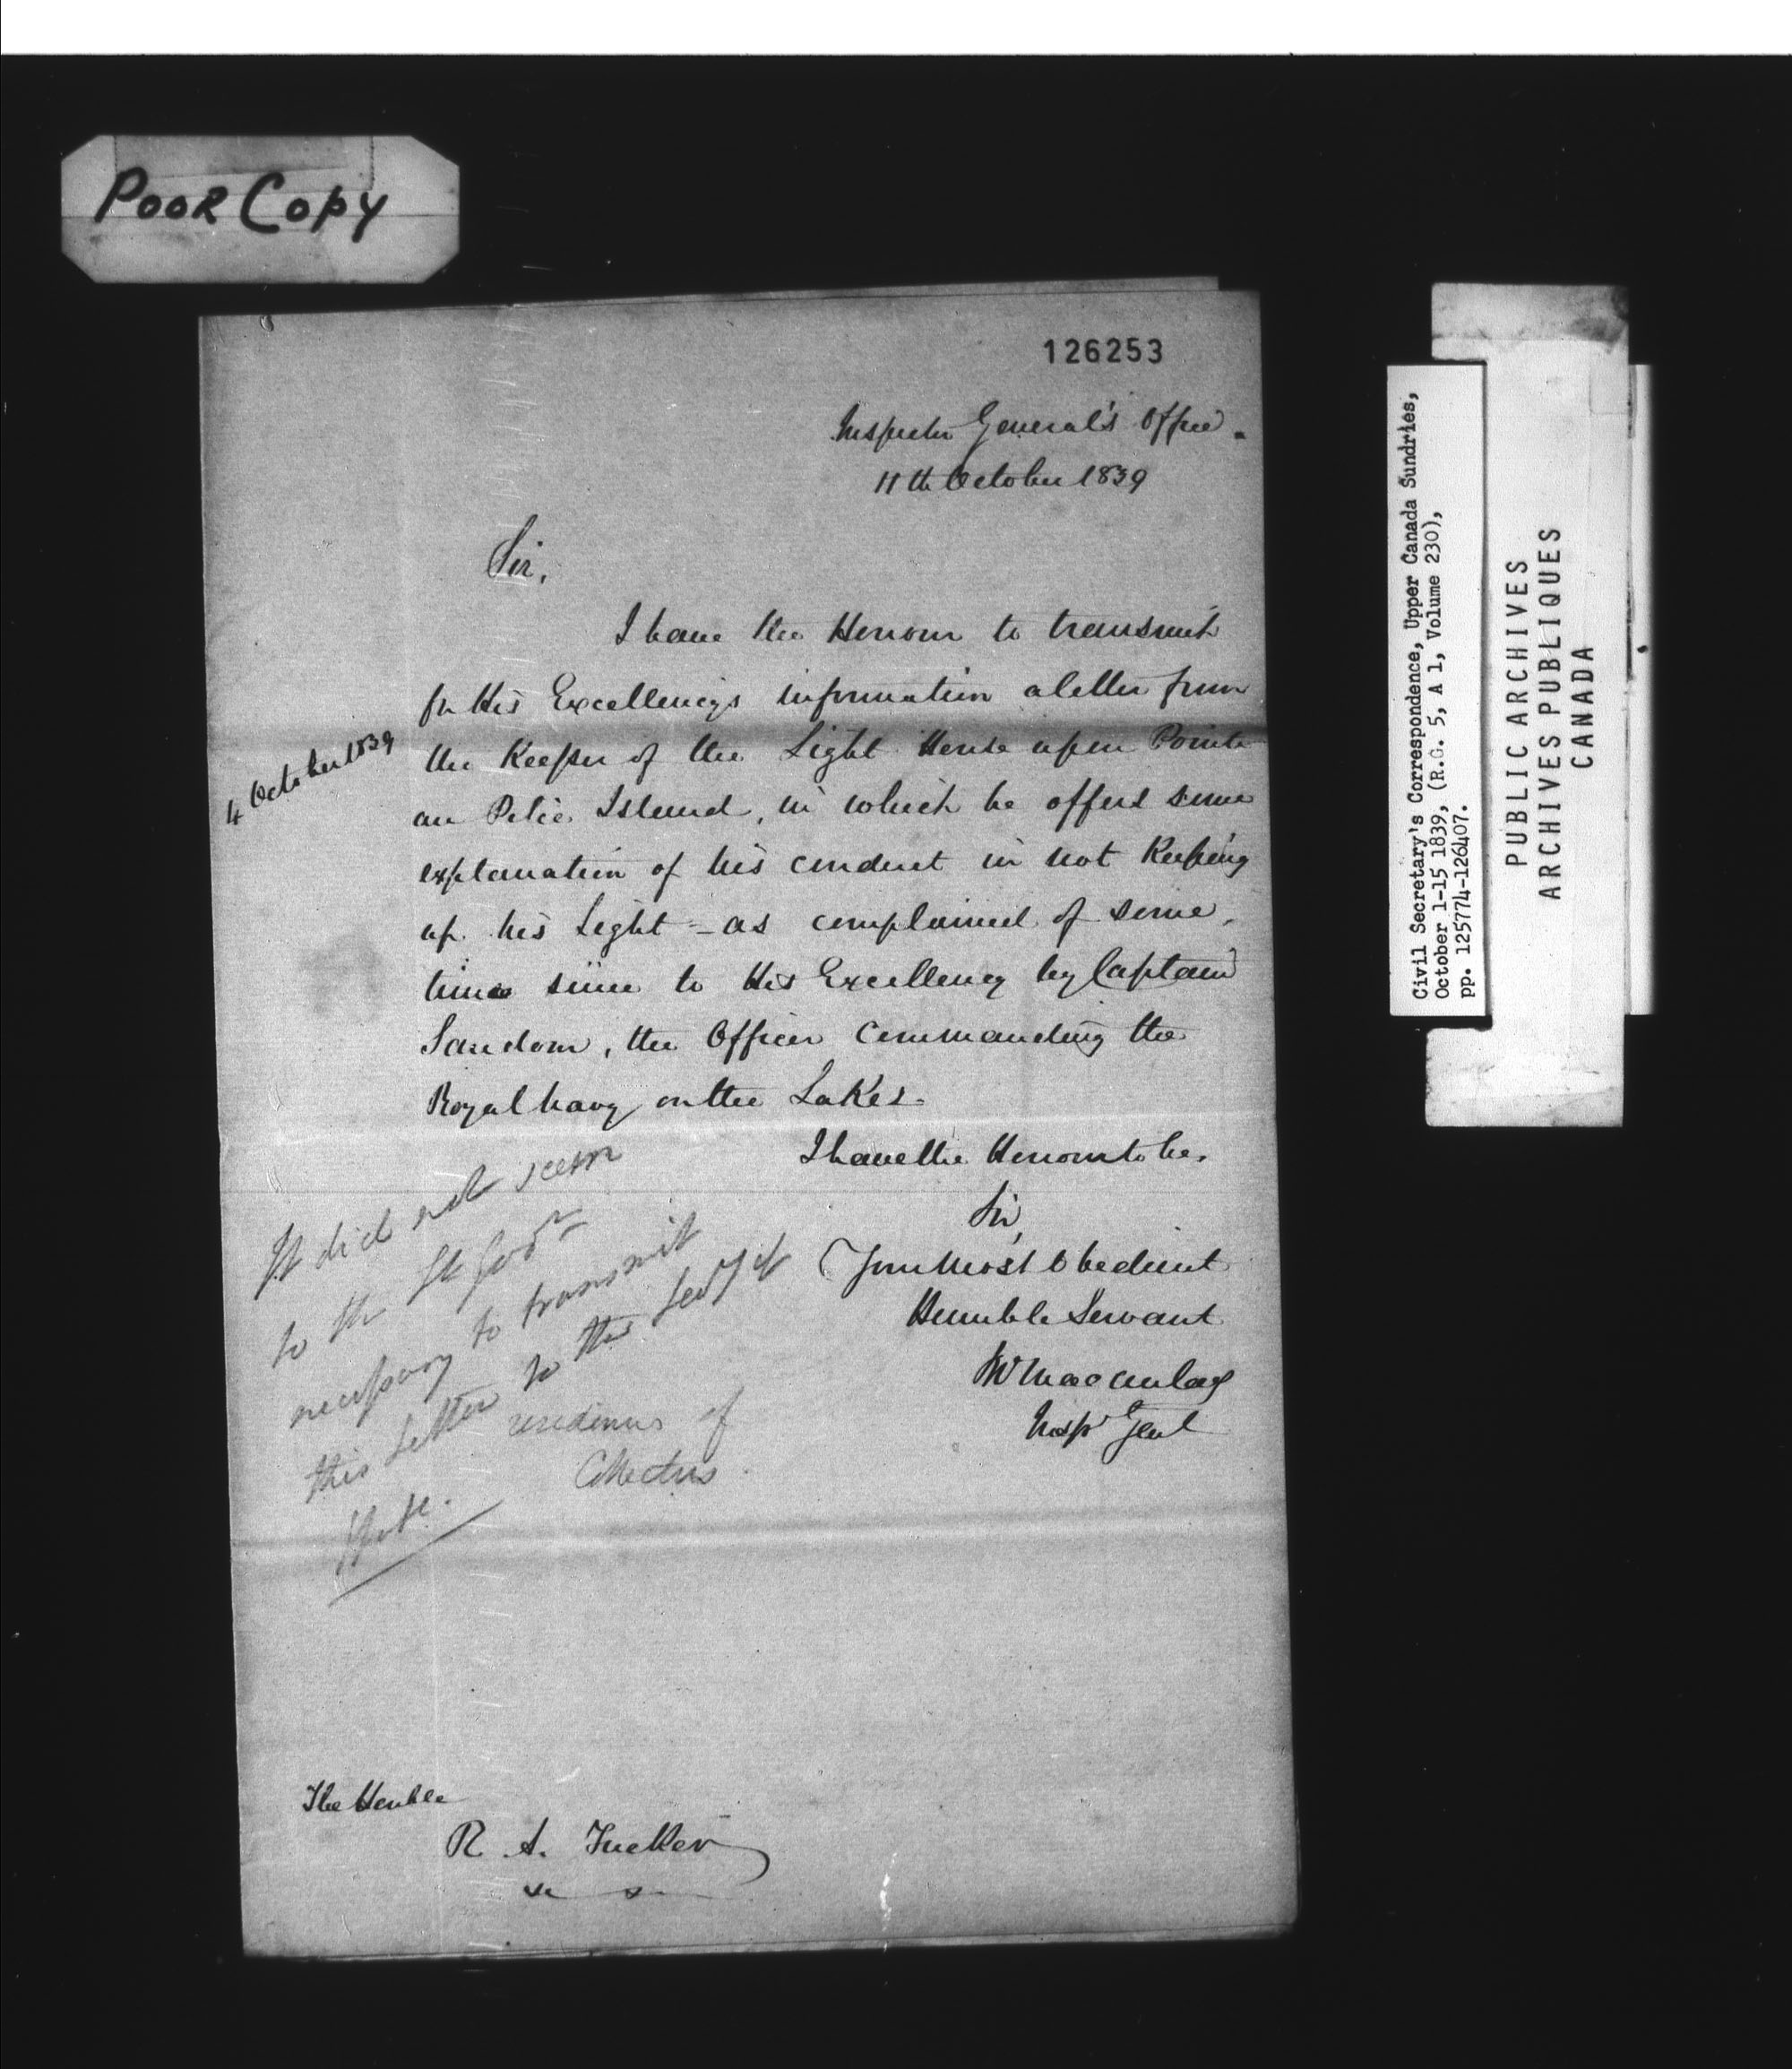 POOR COPY
126253
Inspector General's Office.
11th October 1839
Sir,
I have the Honour to transmit
for His Excellency's information a letter from
the Keeper of the Light House upon Pointe
4 October 1839
au Pelie Island, in which he offers some
explanation of his conduct in not Keeping
up his Light - as complained of some
time since to His Excellency by Captain
Sandom, the Officer Commanding the
Royal Navy on the Lakes.
I have the Honour to be,
Sir,
Your Most Obedient
Humble Servant
Macaulay
Insp Genl
It did not seem
to the Lt Govr
necessary to transmit
this letter to the Secy of
State.
residences of
Collectors
The Honble
R. A. Tucker
Civil Secretary's Correspondence, Upper Canada Sundries,
October 1-15 1839, (R.G. 5, A 1, Volume 230),
pp. 125774-126407.
PUBLIC ARCHIVES
ARCHIVES PUBLIQUES
CANADA